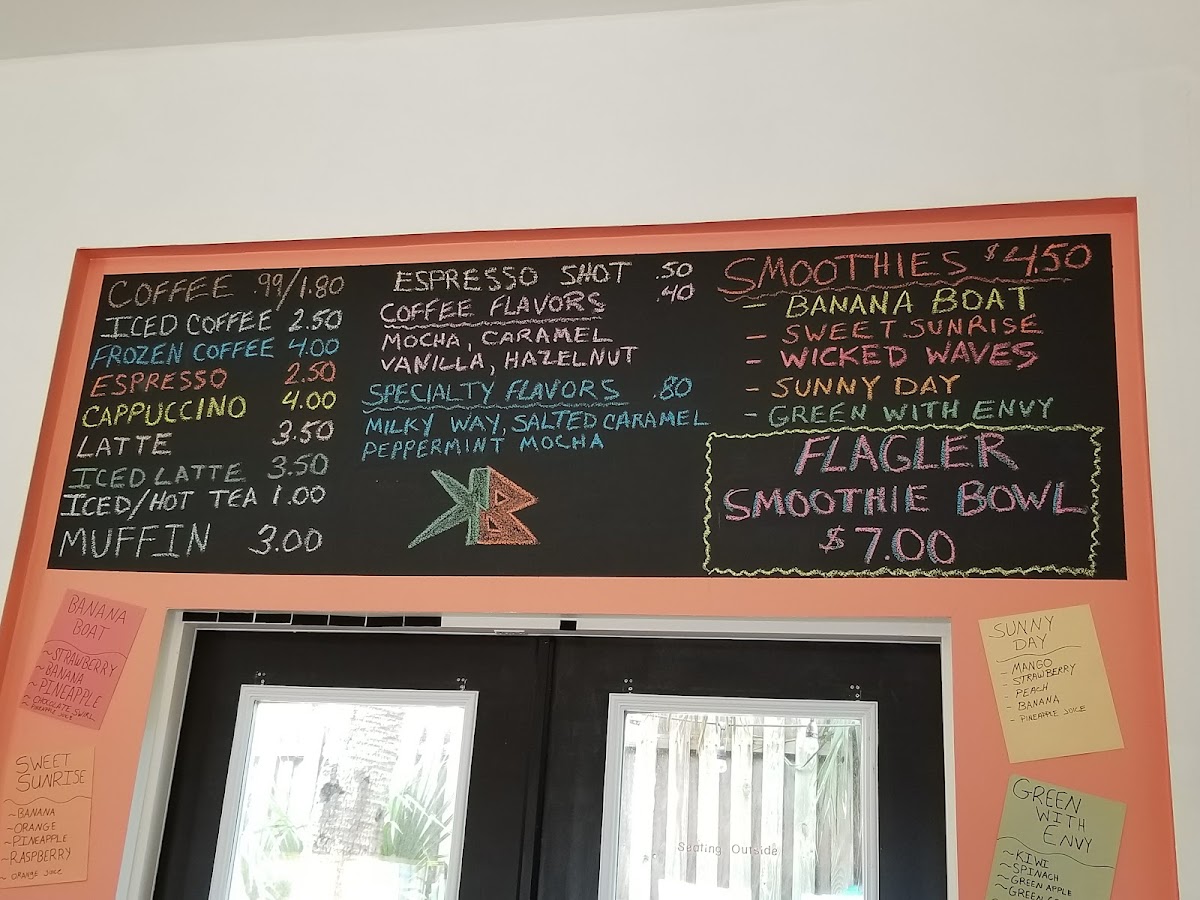 COFFEE .99/1.80
ICED COFFEE 2.50
FROZEN COFFEE 4.00
ESPRESSO 2.50
CAPPUCCINO 4.00
LATTE 3.50
ICED LATTE 3.50
ICED/HOT TEA 1.00
MUFFIN 3.00
ESPRESSO SHOT .50
COFFEE FLAVORS .40
MOCHA, CARAMEL
VANILLA, HAZELNUT
SPECIALTY FLAVORS .80
MILKY WAY, SALTED CARAMEL
PEPPERMINT MOCHA
KB
SMOOTHIES $4.50
- BANANA BOAT
- SWEET SUNRISE
- WICKED WAVES
- SUNNY DAY
- GREEN WITH ENVY
FLAGLER
SMOOTHIE BOWL
$7.00
BANANA
BOAT
~STRAWBERRY
~BANANA
~PINEAPPLE
~CHOCOLATE SWIRL
~PINEAPPLE JUICE
SWEET
SUNRISE
~BANANA
~ORANGE
~PINEAPPLE
~RASPBERRY
~ORANGE JUICE
Seating Outside
SUNNY
DAY
- MANGO
- STRAWBERRY
- PEACH
- BANANA
- PINEAPPLE JUICE
GREEN
WITH
ENVY
~KIWI
~SPINACH
~GREEN APPLE
~GREEN